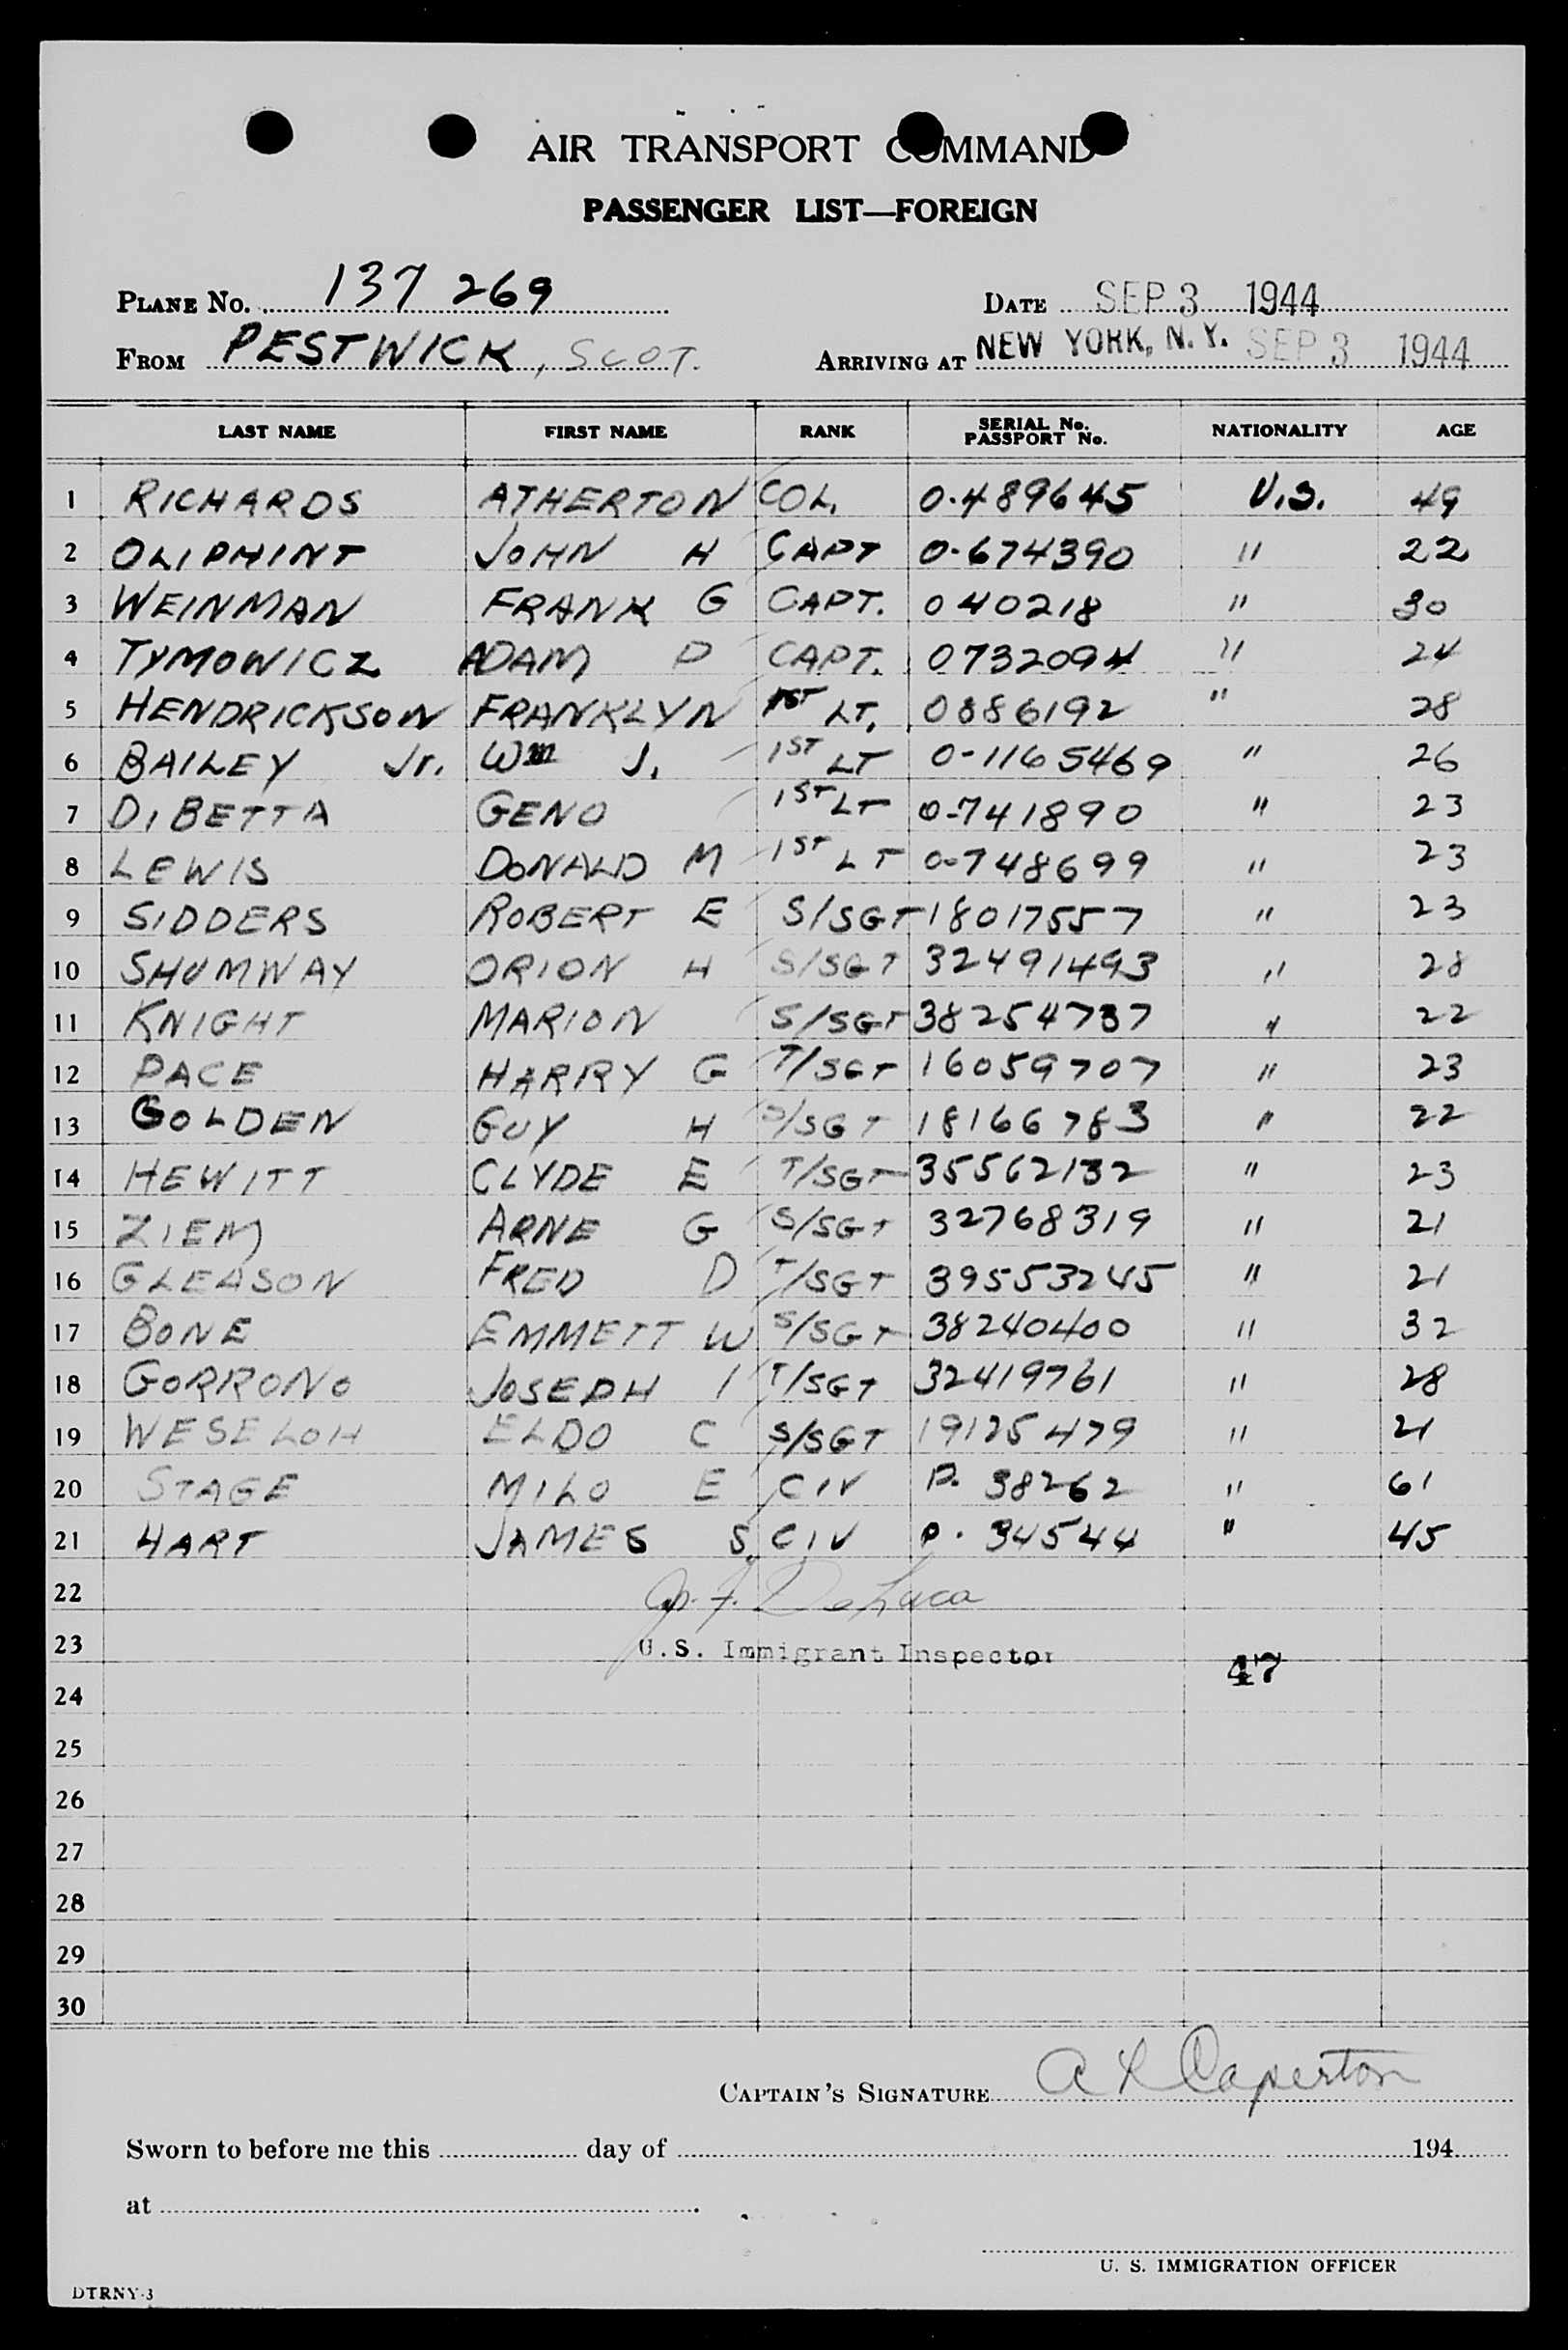 AIR TRANSPORT COMMAND
PASSENGER LIST—FOREIGN
PLANE No. 137 269 DATE SEP 3 1944
FROM PESTWICK, SCOT. ARRIVING AT NEW YORK, N.Y. SEP 3 1944
LAST NAME FIRST NAME RANK SERIAL No. PASSPORT No. NATIONALITY AGE
1 RICHARDS ATHERTON COL. 0-489645 U.S. 49
2 OLIPHINT JOHN H CAPT 0-674390 " 22
3 WEINMAN FRANK G CAPT. 040218 " 30
4 TYMOWICZ ADAM P CAPT. 0732094 " 24
5 HENDRICKSON FRANKLYN 1ST LT. 0886192 " 28
6 BAILEY Jr. Wm J. 1ST LT 0-1165469 " 26
7 DIBETTA GENO 1ST LT 0-741890 " 23
8 LEWIS DONALD M 1ST LT 0-748699 " 23
9 SIDDERS ROBERT E S/SGT 18017557 " 23
10 SHUMWAY ORION H S/SGT 32491493 " 28
11 KNIGHT MARION S/SGT 38254737 " 22
12 PACE HARRY G T/SGT 16059707 " 23
13 GOLDEN GUY H S/SGT 18166783 " 22
14 HEWITT CLYDE E T/SGT 35562132 " 23
15 ZIEM ARNE G S/SGT 32768319 " 21
16 GLEASON FRED D T/SGT 39553245 " 21
17 BONE EMMETT W S/SGT 38240400 " 32
18 GORRONO JOSEPH I T/SGT 32419761 " 28
19 WESELOH ELDO C S/SGT 19125479 " 21
20 STAGE MILO E CIV P. 38262 " 61
21 HART JAMES S. CIV P. 34544 " 45
22 DeLuca
23 U.S. Immigrant Inspector
47
24
25
26
27
28
29
30
CAPTAIN'S SIGNATURE A L Caperton
Sworn to before me this day of 194
at .
U. S. IMMIGRATION OFFICER
DTRNY-3